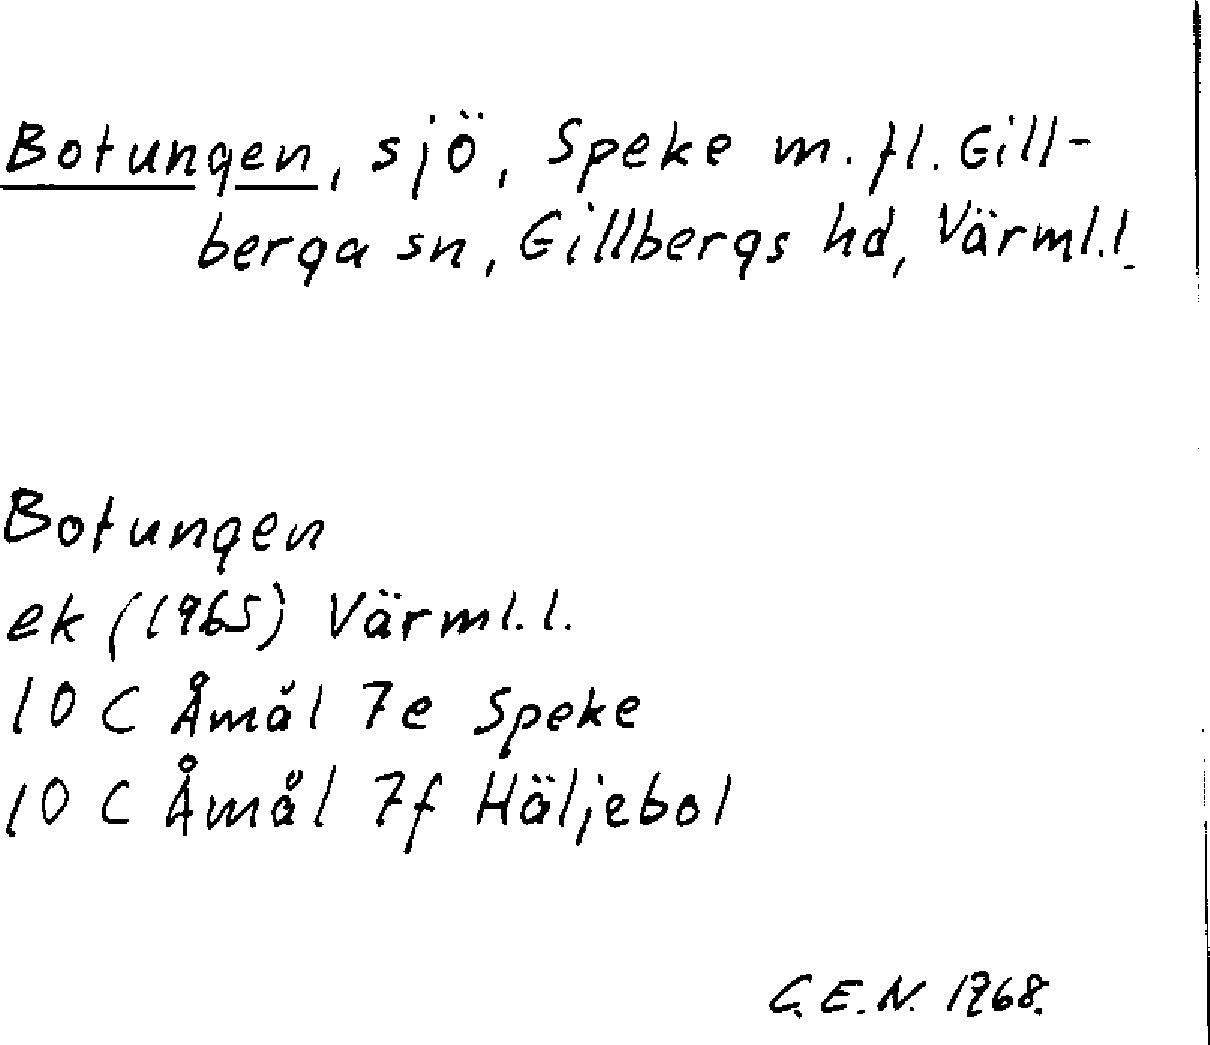 Botungen, sjö, Speke m. fl. Gill-
berga sn, Gillbergs hd, Värml.l.
Botungen
ek (1965) Värml.l.
10 C Åmål 7e Speke
10 C Åmål 7f Häljebol
C.E.N. 1968.